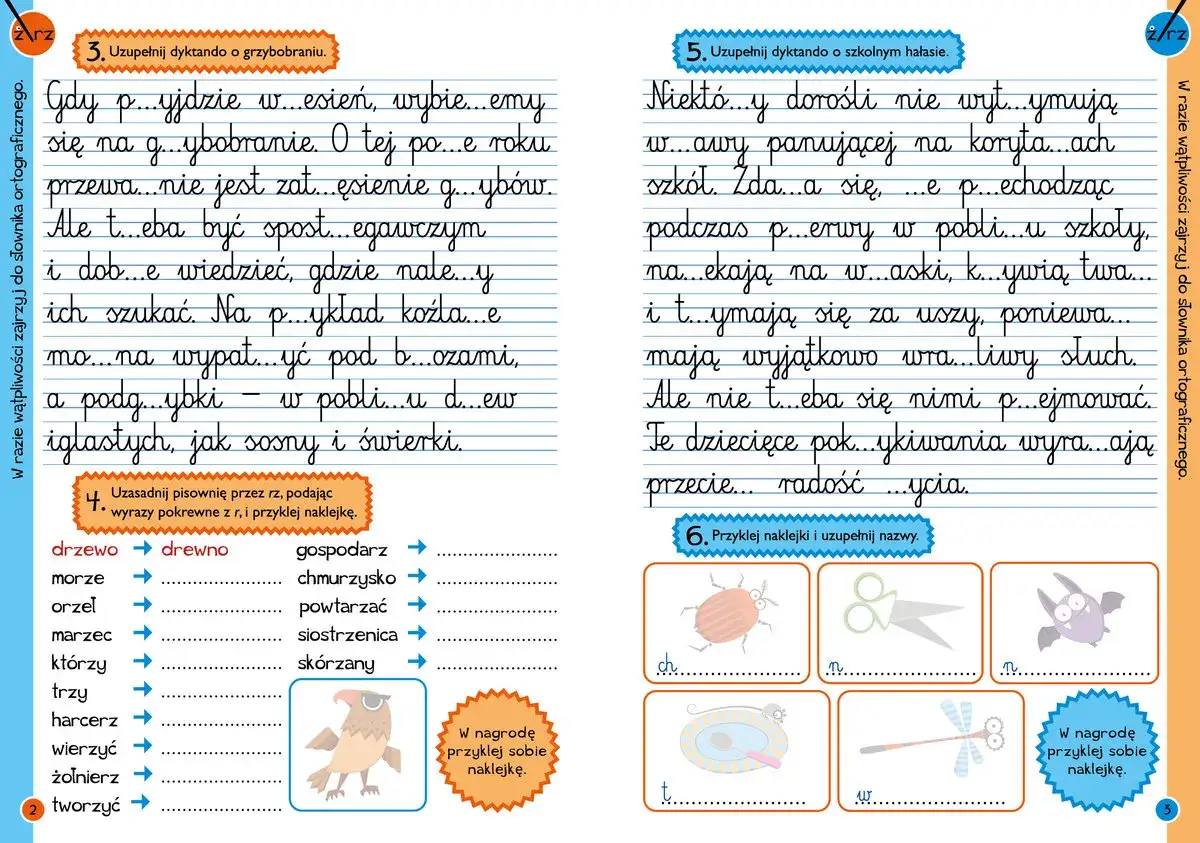 ż/rz
W razie wątpliwości zajrzyj do słownika ortograficznego.
3. Uzupełnij dyktando o grzybobraniu.
Gdy p...yjdzie w...esień, wybie...emy
się na g...ybobranie. O tej po...e roku
przewa...nie jest zat...ęsienie g...ybów.
Ale t...eba być spost...egawczym
i dob...e wiedzieć, gdzie nale...y
ich szukać. Na p...ykład koźla...e
mo...na wypat...yć pod b...ozami,
a podg...ybki – w pobli...u d...ew
iglastych, jak sosny i świerki.
4. Uzasadnij pisownię przez rz, podając
wyrazy pokrewne z r, i przyklej naklejkę.
drzewo → drewno
morze → ......................
orzeł → ......................
marzec → ......................
którzy → ......................
trzy → ......................
harcerz → ......................
wierzyć → ......................
żołnierz → ......................
tworzyć → ......................
gospodarz → ......................
chmurzysko → ......................
powtarzać → ......................
siostrzenica → ......................
skórzany → ......................
W nagrodę
przyklej sobie
naklejkę.
2
5. Uzupełnij dyktando o szkolnym hałasie.
Niektó...y dorośli nie wyt...ymują
w...awy panującej na koryta...ach
szkół. Zda...a się, ...e p...echodząc
podczas p...erwy w pobli...u szkoły,
na...ekają na w...aski, k...ywią twa...
i t...ymają się za uszy, poniewa...
mają wyjątkowo wra...liwy słuch.
Ale nie t...eba się nimi p...ejmować.
Te dziecięce pok...ykiwania wyra...ają
przecie... radość ...ycia.
6. Przyklej naklejki i uzupełnij nazwy.
ch......................
n......................
n......................
t......................
w......................
W nagrodę
przyklej sobie
naklejkę.
3
ż/rz
W razie wątpliwości zajrzyj do słownika ortograficznego.